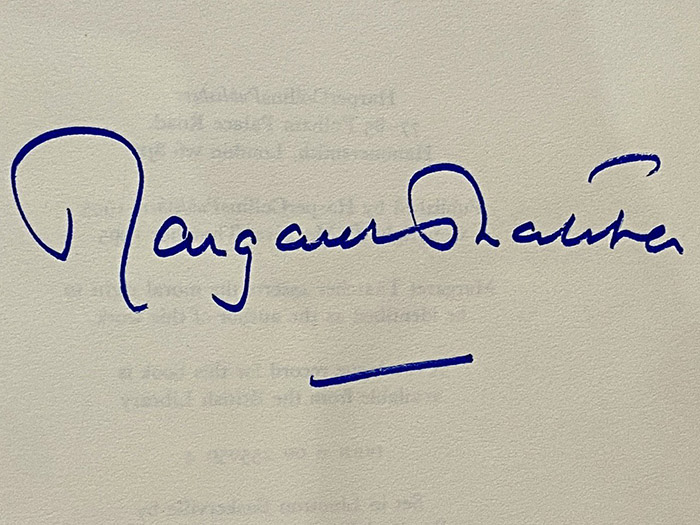 Margaret Thatcher
HarperCollinsPublishers
77–85 Fulham Palace Road,
Hammersmith, London W6 8JB
Published by HarperCollinsPublishers
Margaret Thatcher asserts the moral right to
be identified as the author of this work
record for this book is
available from the British Library
ISBN 0 00
Set in Linotron Baskerville by